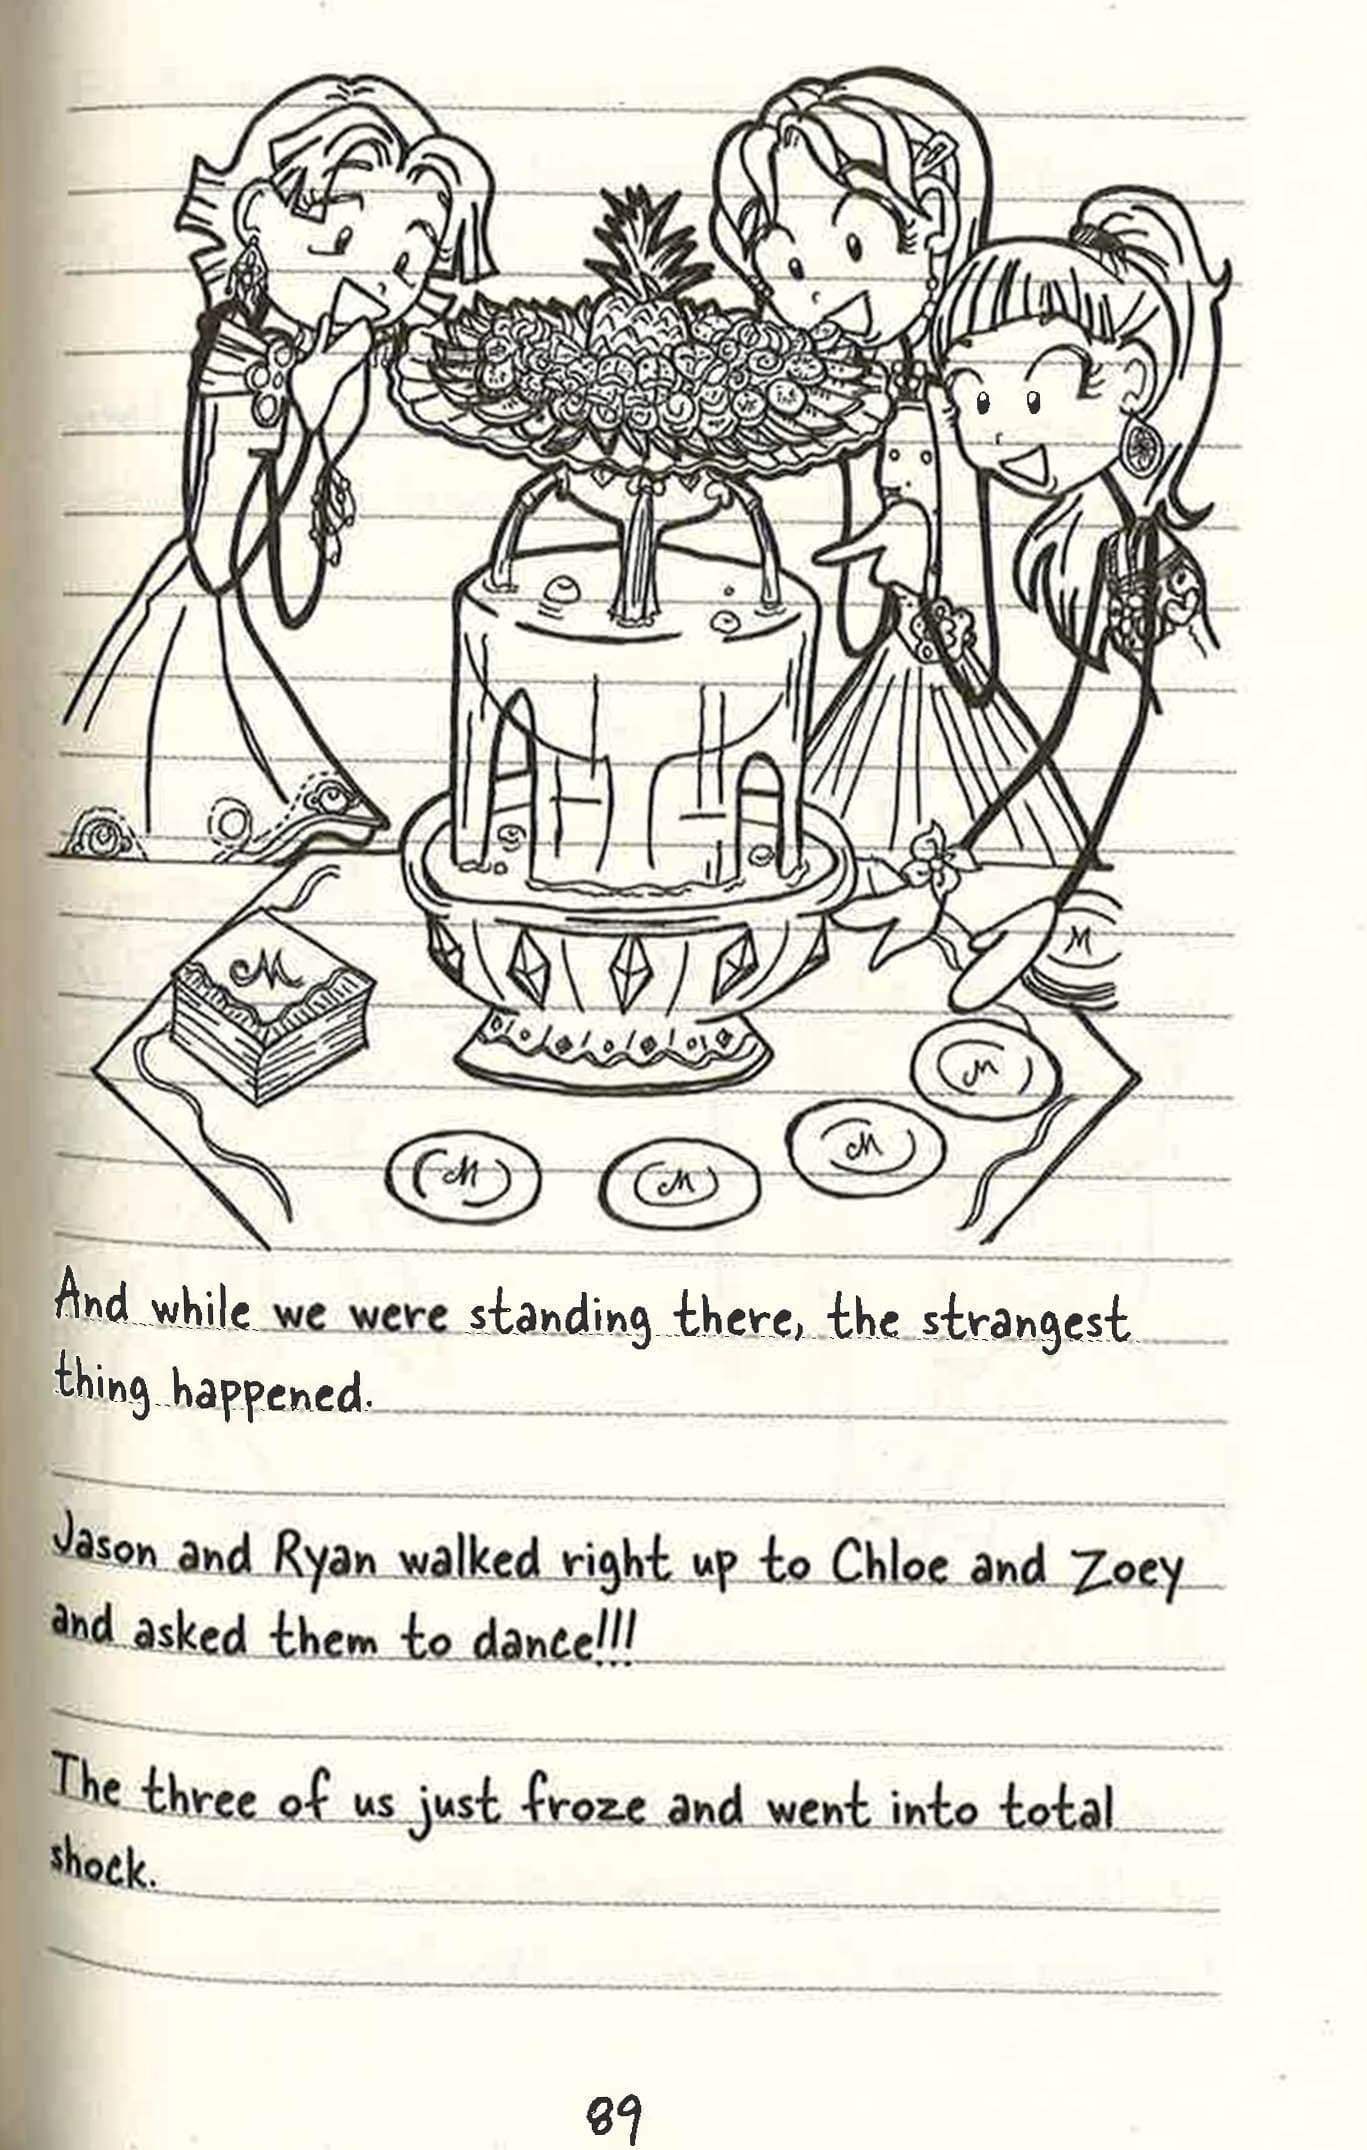 M
M
M
M
M
M
And while we were standing there, the strangest
thing happened.
Jason and Ryan walked right up to Chloe and Zoey
and asked them to dance!!!
The three of us just froze and went into total
shock.
89